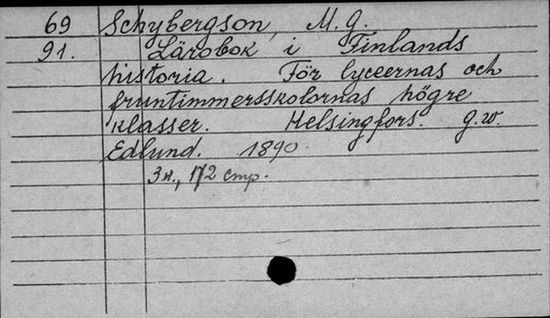 69 Schybergson, M. G.
91. Lärobok i Finlands
historia. För lyceernas och
fruntimmersskolornas högre
klasser. Helsingfors. G.W.
Edlund. 1890.
3н., 172 стр.